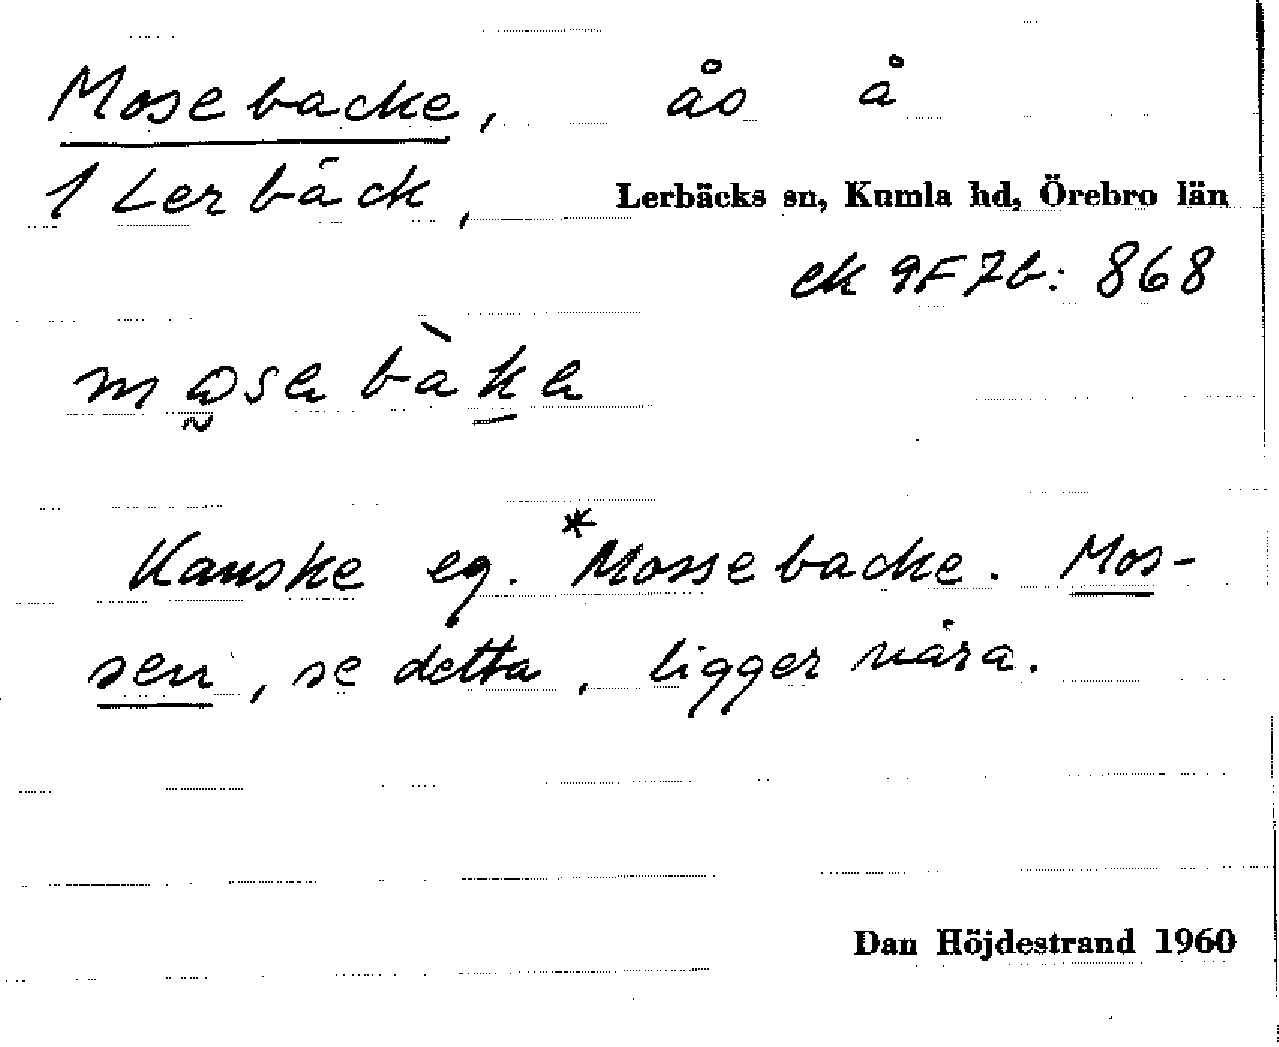 Mosebacke, ås å
1 Lerbäck, Lerbäcks sn, Kumla hd, Örebro län
ek 9F7b: 868
Kanske eg. *Mossebacke. Mos-
sen, se detta, ligger nära.
Dan Höjdestrand 1960